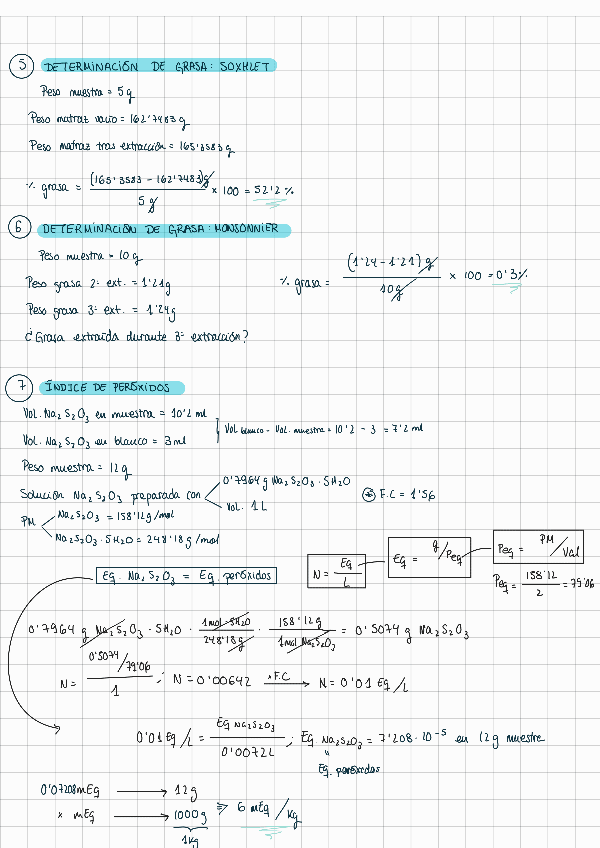 5 DETERMINACIÓN DE GRASA: SOXHLET
Peso muestra = 5 g
Peso matraz vacío = 162'7483 g
Peso matraz tras extracción = 165'3583 g
% grasa = (165'3583 - 162'7483) g / 5 g × 100 = 52'2 %
6 DETERMINACIÓN DE GRASA: MONSONNIER
Peso muestra = 10 g
Peso grasa 2ª ext. = 1'21 g
Peso grasa 3ª ext. = 1'24 g
¿Grasa extraída durante 3ª extracción?
% grasa = (1'24 - 1'21) g / 10 g × 100 = 0'3 %
7 ÍNDICE DE PERÓXIDOS
Vol. Na₂S₂O₃ en muestra = 10'2 ml
Vol. Na₂S₂O₃ en blanco = 3 ml
Vol blanco - Vol. muestra = 10'2 - 3 = 7'2 ml
Peso muestra = 12 g
Solución Na₂S₂O₃ preparada con
0'7964 g Na₂S₂O₃ · 5H₂O
Vol. 1 L
* F.C = 1'56
PM
Na₂S₂O₃ = 158'12 g/mol
Na₂S₂O₃ · 5H₂O = 248'18 g/mol
N = Eq / L
Eq = g / Peq
Peq = PM / Val
Peq = 158'12 / 2 = 79'06
Eq. Na₂S₂O₃ = Eq. peróxidos
0'7964 g Na₂S₂O₃ · 5H₂O · 1 mol · 5H₂O / 248'18 g · 158'12 g / 1 mol Na₂S₂O₃ = 0'5074 g Na₂S₂O₃
N = 0'5074/79'06 / 1 ; N = 0'00642 ×F.C → N = 0'01 Eq/L
0'01 Eq/L = Eq Na₂S₂O₃ / 0'0072 L ; Eq. Na₂S₂O₃ = 7'208 · 10⁻⁵ en 12 g muestra
"
Eq. peróxidos
0'07208 mEq → 12 g
x mEq → 1000 g ⇒ 6 mEq/Kg
1 Kg